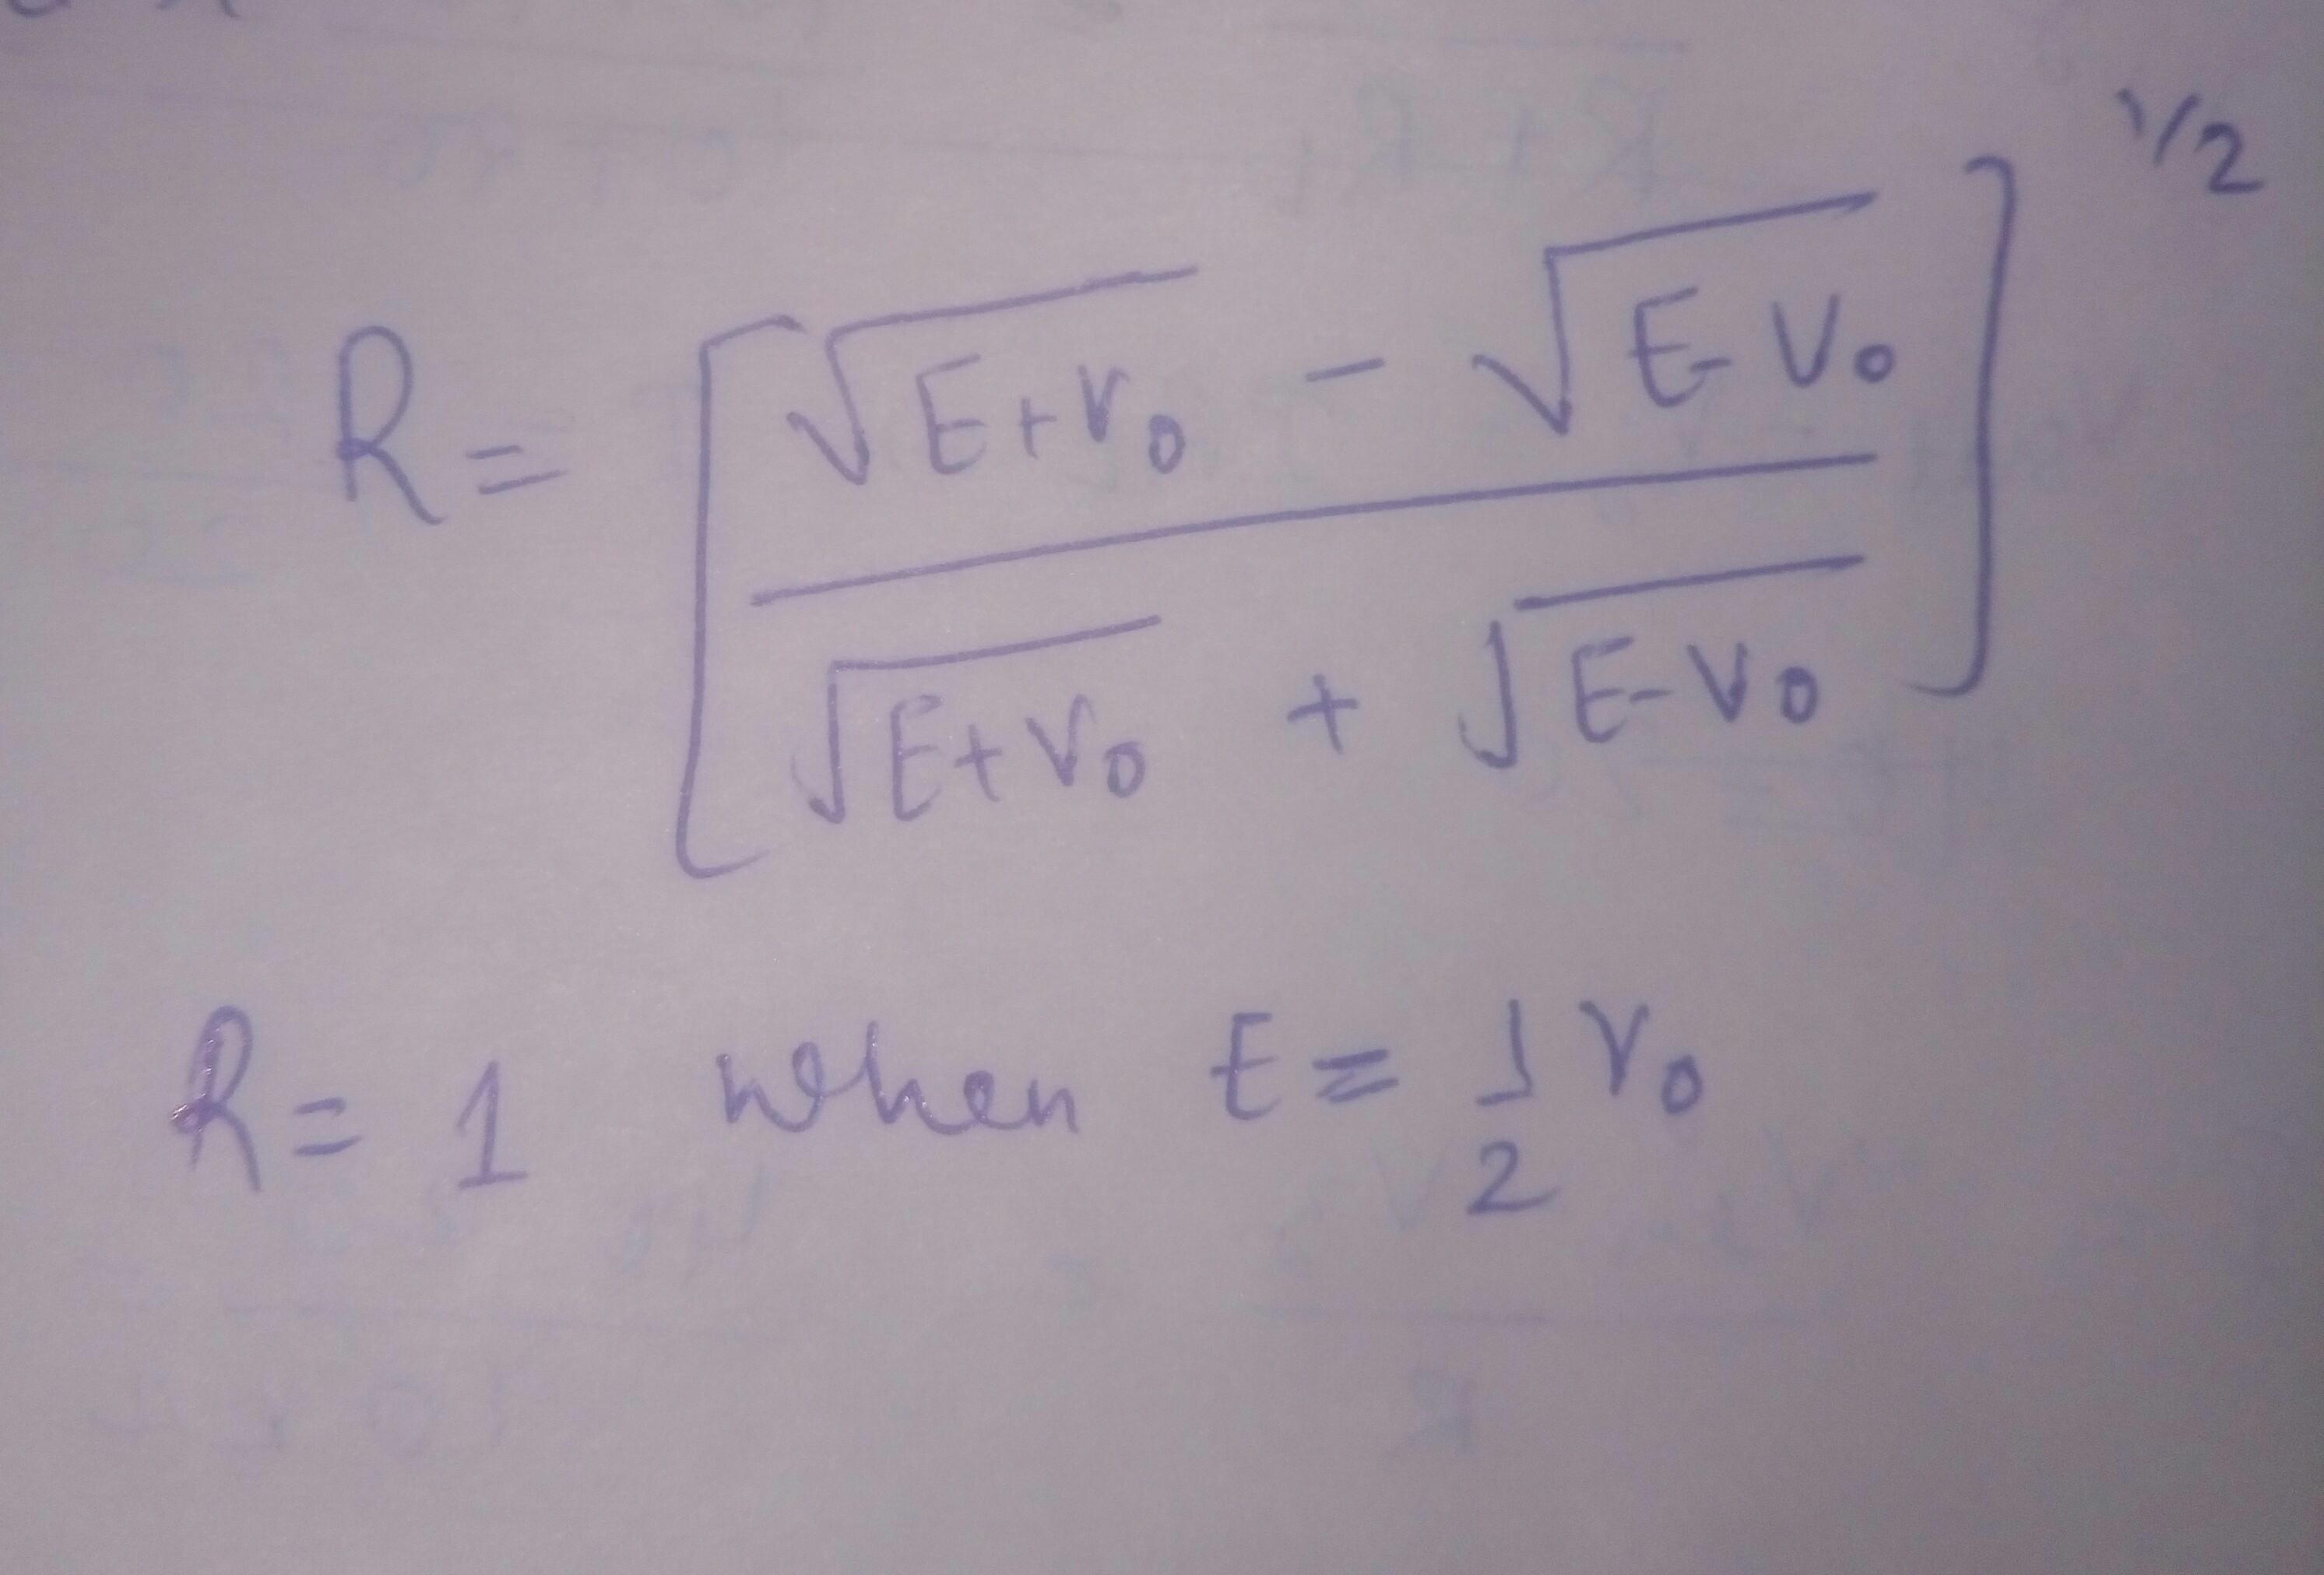 R = [ (√(E+V₀) - √(E-V₀)) / (√(E+V₀) + √(E-V₀)) ]^1/2
R = 1 when E = 1/2 V₀